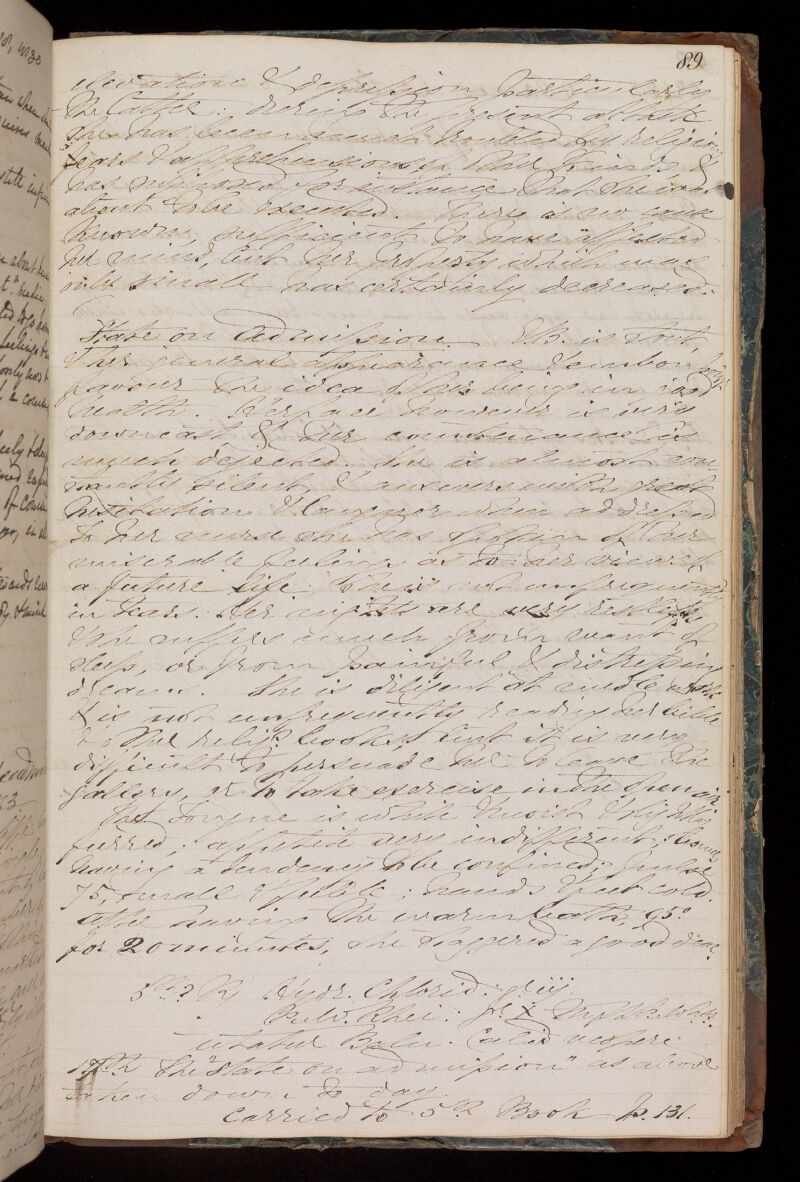 89
elevation & depression particularly
the latter. During the present attack
she has been much troubled by religious
fears & apprehensions of other kinds &
has supposed for instance that she was
about to be executed. There is no cause
known, sufficient to have affected
her mind, but her property which was
only small has certainly decreased.
State on admission. E.B. is stout,
& her general appearance & embonpoint
favour the idea of her being in good
health. Her face however is very
downcast & her countenance is
much dejected. She is almost con-
stantly silent & answers with great
hesitation & languor when addressed
To her nurse she has spoken of her
miserable feelings as to her views of
a future life; & is not unfrequently
in tears. Her nights are very restless
& she suffers much from want of
sleep, or from painful & distressing
dreams. She is diligent at needle work
& is not unfrequently reading her bible
& other relig. books but it is very
difficult to persuade her to leave the
gallery, or to take exercise in the open air.
Her tongue is white moist & slightly
furred; appetite very indifferent; bowels
having a tendency to be confined; pulse
75, small & feeble; hands & feet cold.
After having the warm bath, 95°
for 20 minutes, she staggered a good deal
5th R Hydr. Chlorid. gr iij
Pulv. Rhei. gr. X
utatur Baln. Calid. vespere
The "state on admission" as above
taken down to day.
carried to 5th Book p. 131.